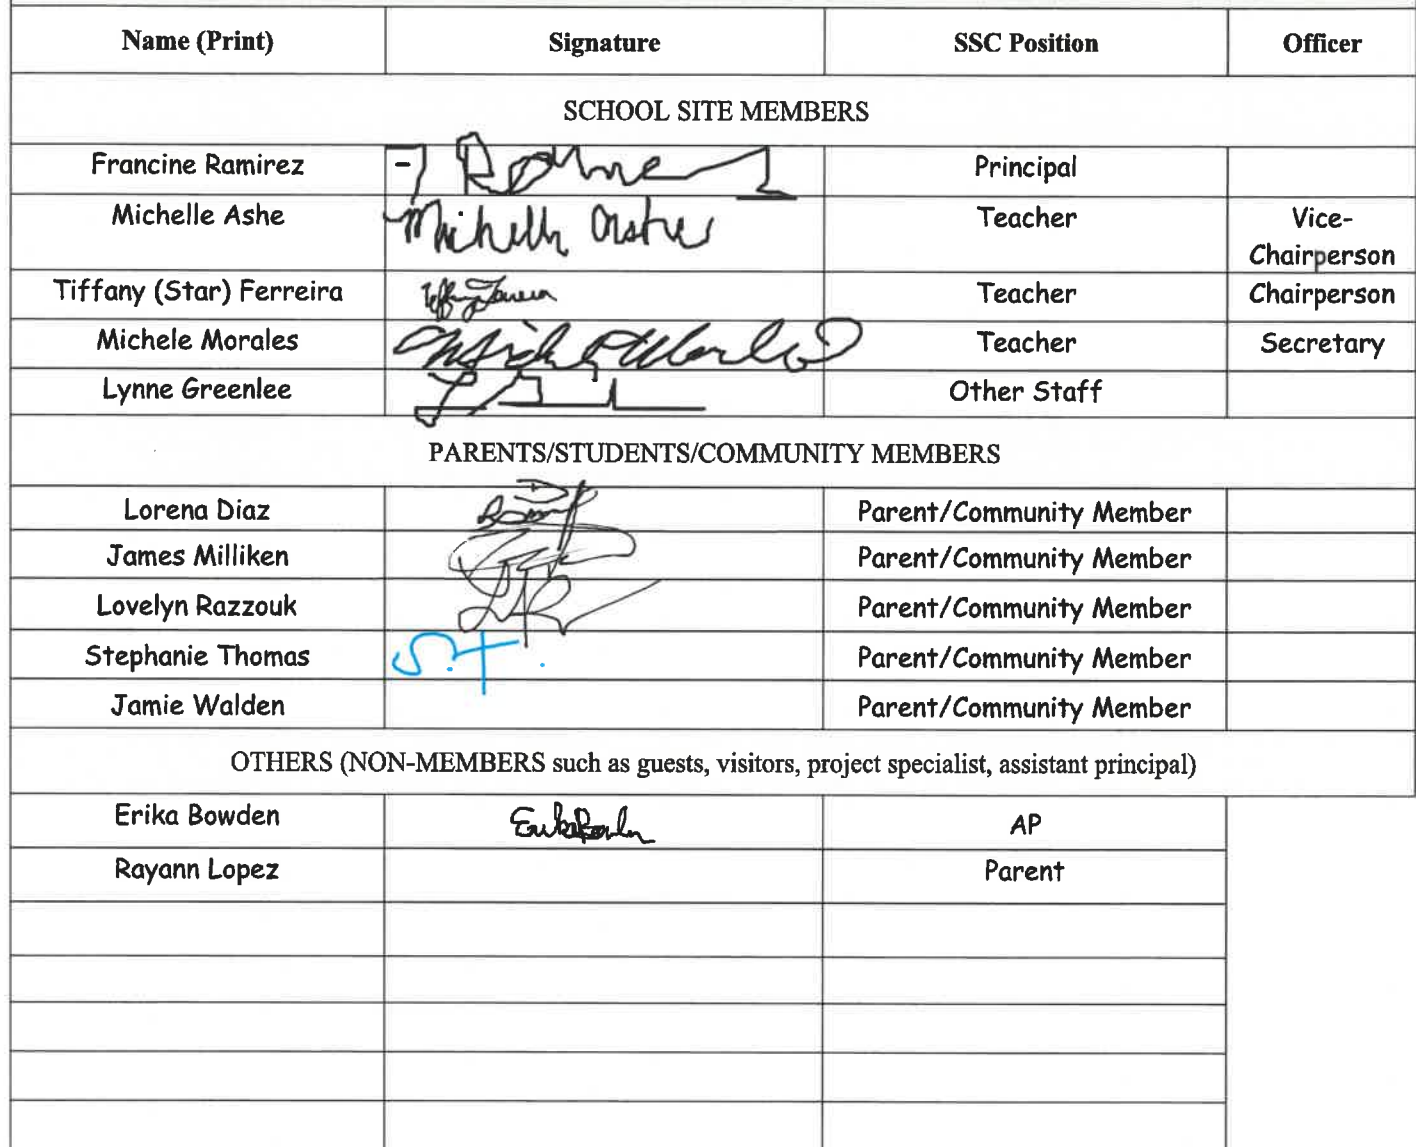 Name (Print) Signature SSC Position Officer
SCHOOL SITE MEMBERS
Francine Ramirez Principal
Michelle Ashe Michelle Teacher Vice-
Chairperson
Tiffany (Star) Ferreira Tiffany Ferreira Teacher Chairperson
Michele Morales Michele Morales Teacher Secretary
Lynne Greenlee Other Staff
PARENTS/STUDENTS/COMMUNITY MEMBERS
Lorena Diaz Parent/Community Member
James Milliken Parent/Community Member
Lovelyn Razzouk LR Parent/Community Member
Stephanie Thomas S.T. Parent/Community Member
Jamie Walden Parent/Community Member
OTHERS (NON-MEMBERS such as guests, visitors, project specialist, assistant principal)
Erika Bowden Erika Bowden AP
Rayann Lopez Parent